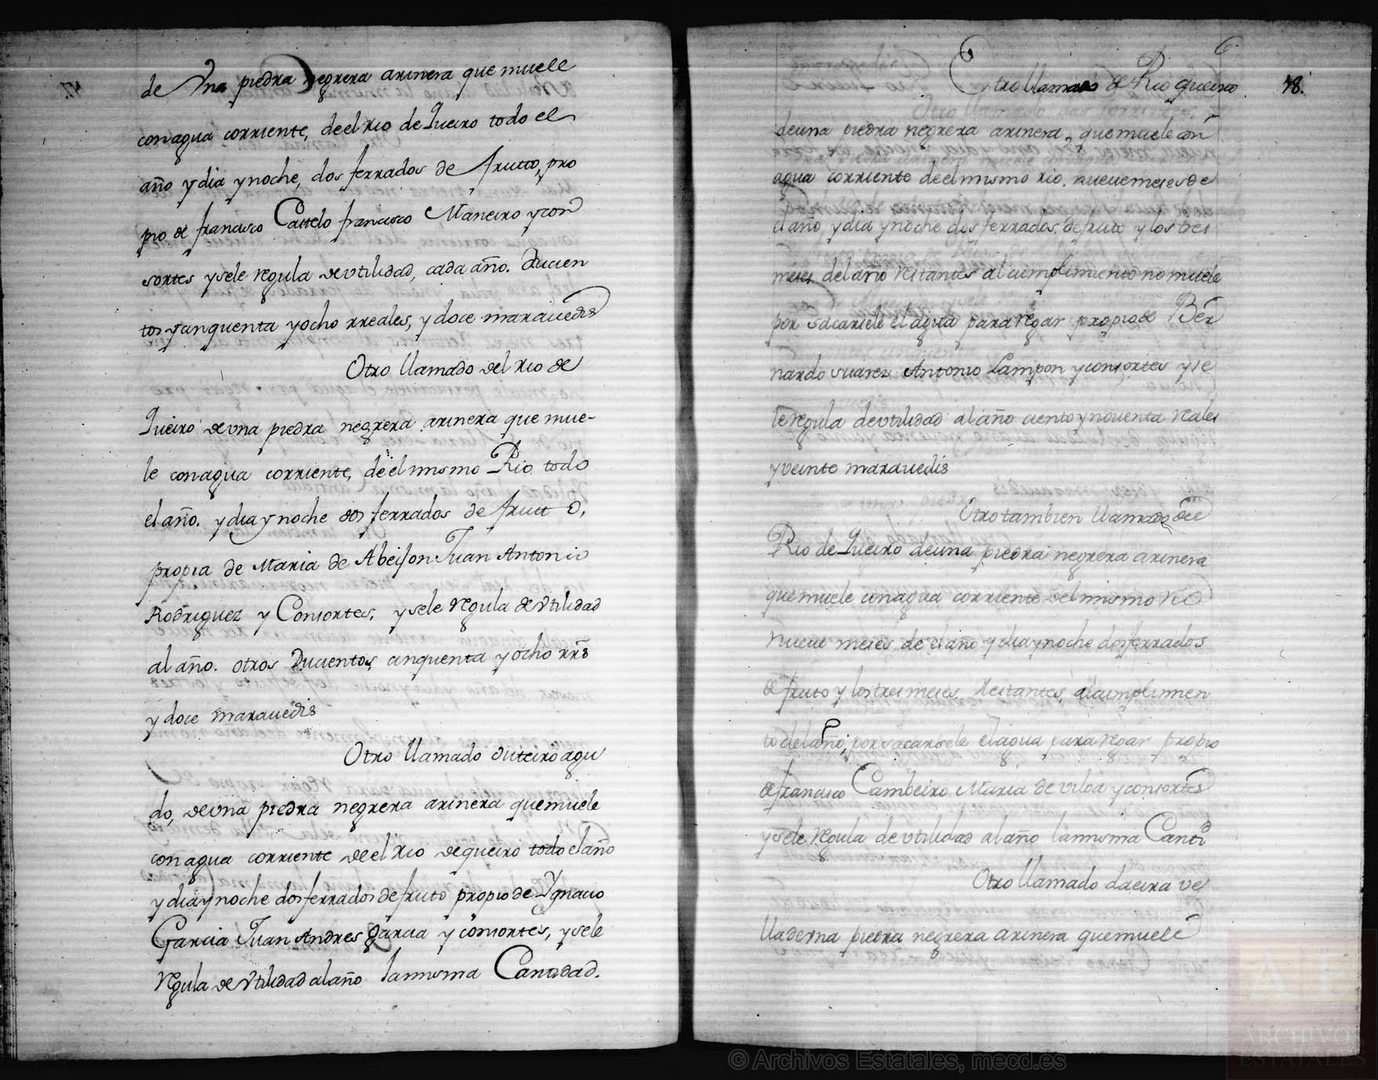 de Vna piedra negrera arinera que muele
con agua corriente, de el rio de Queiro todo el
año y dia y noche, dos ferrados de frutto, pro
pio de francisco Castelo francisco Maneiro y con
sortes y sele regula de utilidad, cada año. Ducien
tos y cinquenta y ocho rreales, y doce maravedis
Otro llamado del rio de
Queiro de vna piedra negrera arinera que mue-
le con agua corriente, de el mismo Rio todo
el año. y dia y noche dos ferrados de frutto,
propia de Maria de Abeijon Juan Antonio
Rodriguez y Consortes, y sele regula de vtilidad
al año. otros Ducientos, cinquenta y ocho rrs
y doce maravedis
Otro llamado outeiro agu
do, de vna piedra negrera arinera que muele
con agua corriente de el Rio de queiro todo el año
y dia y noche dos ferrados de fruto propio de Ygnacio
Garcia Juan Andres garcia y consortes, y sele
Regula de vtilidad al año la misma Cantidad.
Otro llamado de Rio queiro 48.
de una piedra negrera arinera, que muele con
agua corriente de el mismo rio, nueve meses de
el año y dia y noche dos ferrados de fruto y los tres
meses del año restantes al cumplimiento no muele
por sacarsele el agua para regar propio de Ber
nardo suarez Antonio Lampon y consortes y se
le regula de utilidad al año ciento y noventa reales
y veinte maravedis
Otro tambien llamado del
Rio de Queiro de una piedra negrera arinera
que muele con agua corriente del mismo rio
nueve meses de el año y dia y noche dos ferrados
de fruto y los tres meses, Restantes, al cumplimen
to del año, por sacarsele el agua para regar propio
de francisco Cambeiro Maria de vilda y consortes
y sele regula de vtilidad al año la misma Cantid
Otro llamado Laeira ve
lla de una piedra negrera arinera que muele
© Archivos Estatales, mecd.es
ARCHIVOS
ESTATALES